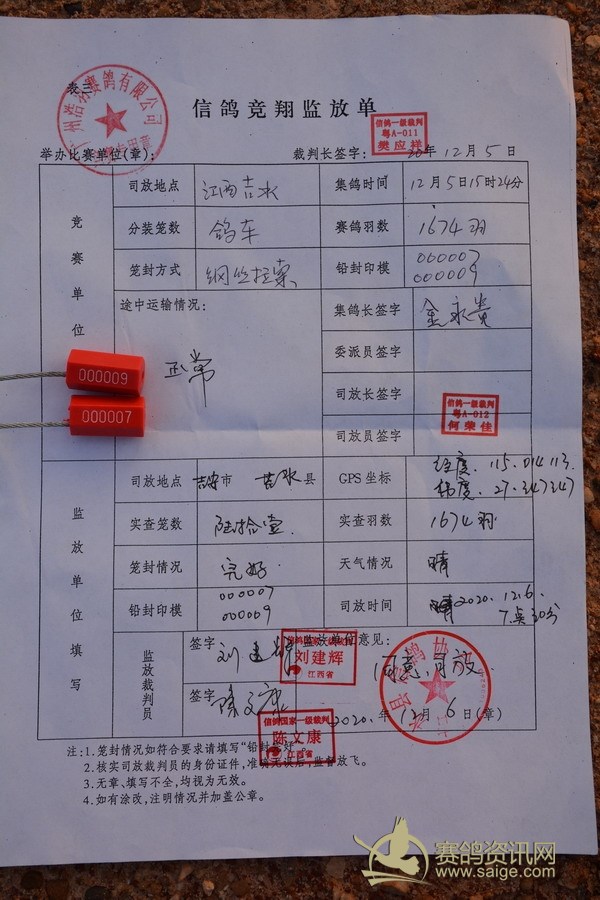 表三
州浩羽赛鸽有限公司
信鸽竞翔监放单
信鸽一级裁判
粤A-011
樊应祥
举办比赛单位(章): 裁判长签字: 20年12月5日
竞赛单位
司放地点 江西吉水 集鸽时间 12月5日15时24分
分装笼数 鸽车 赛鸽羽数 1674羽
笼封方式 钢丝拉索 铅封印模 000007
000009
途中运输情况: 集鸽长签字 金永贵
正常
委派员签字
司放长签字
信鸽一级裁判
粤A-012
何荣佳
司放员签字
000009
000007
监放单位填写
司放地点 吉安市 吉水县 GPS坐标 经度.115.014113.
纬度.27.347347
实查笼数 陆拾壹. 实查羽数 1674羽.
笼封情况 完好. 天气情况 晴
铅封印模 000007
000009
司放时间 2020.12.6.
7.点30分
监放裁判员
签字 刘建辉 监放单位意见:
刘建辉
江西省
同意.司放.
签字 陈文康
信鸽国家一级裁判
陈文康
江西省
2020.年12月6日(章)
注:1.笼封情况如符合要求请填写“铅封完好”。
2.核实司放裁判员的身份证件,准确无误后,监督放飞。
3.无章、填写不全,均视为无效。
4.如有涂改,注明情况并加盖公章。
赛鸽资讯网
www.saige.com